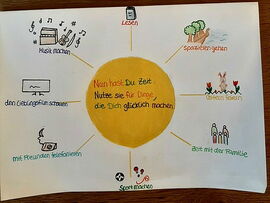 Lesen
Musik machen
spazieren gehen
Nun hast Du Zeit.
Nutze sie für Dinge,
die Dich glücklich machen
den Lieblingsfilm schauen
Ostern feiern
mit Freunden telefonieren
Zeit mit der Familie
Sport machen